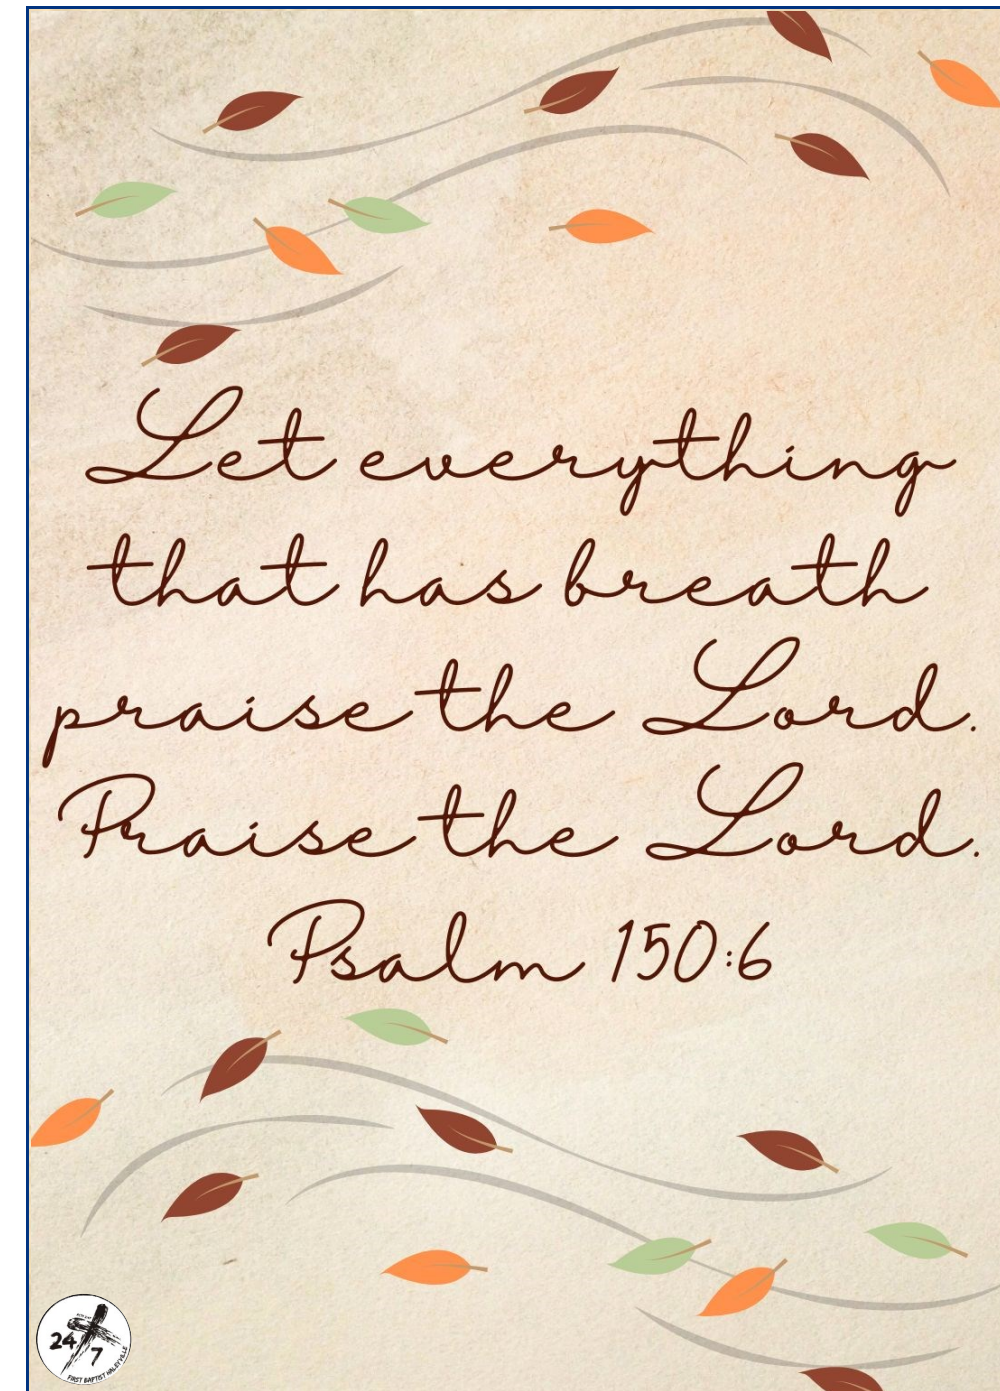 Let everything
that has breath
praise the Lord.
Praise the Lord.
Psalm 150:6
24
7
FIRST BAPTIST HALEYVILLE